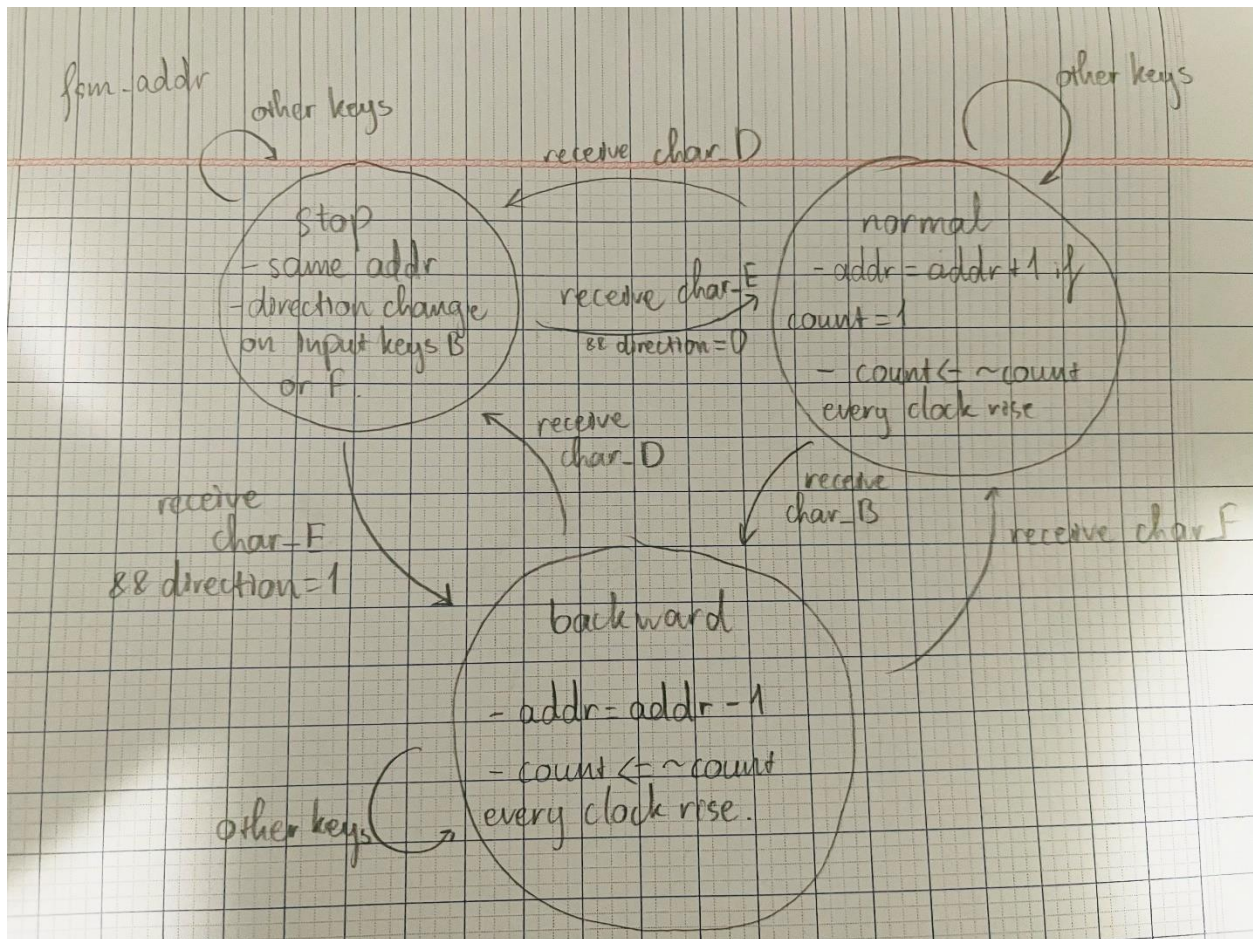 fsm_addr
other keys
other keys
receive char_D
stop
- same addr
- direction change
on input keys B
or F.
normal
- addr = addr + 1 if
count = 1
- count <= ~count
every clock rise
receive char_E
&& direction = 0
receive
char_D
receive
char_B
receive
char_E
&& direction = 1
receive char_F
backward
- addr = addr - 1
- count <= ~count
every clock rise.
other keys